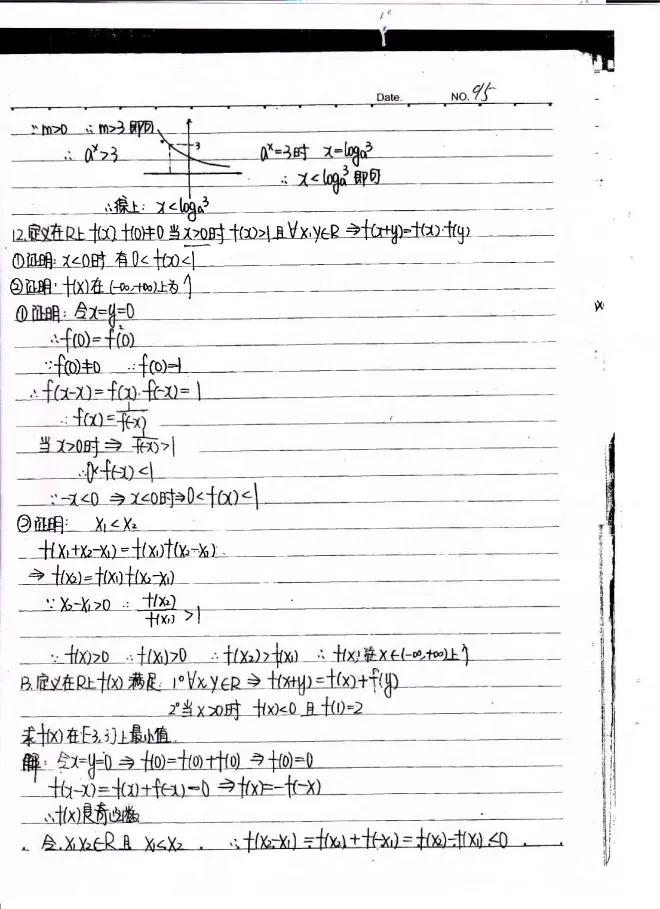 Date. NO. 95
∵ m>0 ∴ m>3即可
3
∴ aˣ>3 aˣ=3时 x=logₐ3
∴ x<logₐ3 即可
∴综上: x<logₐ3
12.定义在R上 f(x) f(0)≠0 当x>0时 f(x)>1 且∀x,y∈R ⇒f(x+y)=f(x)·f(y)
①证明: x<0时 有0<f(x)<1
②证明: f(x)在(-∞,+∞)上为↑
①证明: 令x=y=0
∴f(0)=f²(0)
∵f(0)≠0 ∴f(0)=1
∴f(x-x)=f(x)·f(-x)=1
∴f(x)=1/f(-x)
当x>0时⇒ 1/f(-x)>1
∴0<f(-x)<1
∵-x<0 ⇒x<0时⇒0<f(x)<1
②证明: x₁<x₂
f(x₁+x₂-x₁)=f(x₁)f(x₂-x₁)
⇒f(x₂)=f(x₁)f(x₂-x₁)
∵x₂-x₁>0 ∴ f(x₂)/f(x₁) >1
∵f(x)>0 ∴f(x₁)>0 ∴f(x₂)>f(x₁) ∴f(x)在x∈(-∞,+∞)上↑
13.定义在R上f(x) 满足: 1°∀x,y∈R ⇒f(x+y)=f(x)+f(y)
2°当x>0时 f(x)<0 且f(1)=2
求f(x)在[-3,3]上最小值.
解: 令x=y=0 ⇒f(0)=f(0)+f(0) ⇒f(0)=0
f(x-x)=f(x)+f(-x)=0 ⇒f(x)=-f(-x)
∴f(x)是奇函数
令x₁x₂∈R且 x₁<x₂. ∴f(x₂-x₁)=f(x₂)+f(-x₁)=f(x₂)-f(x₁)≤0